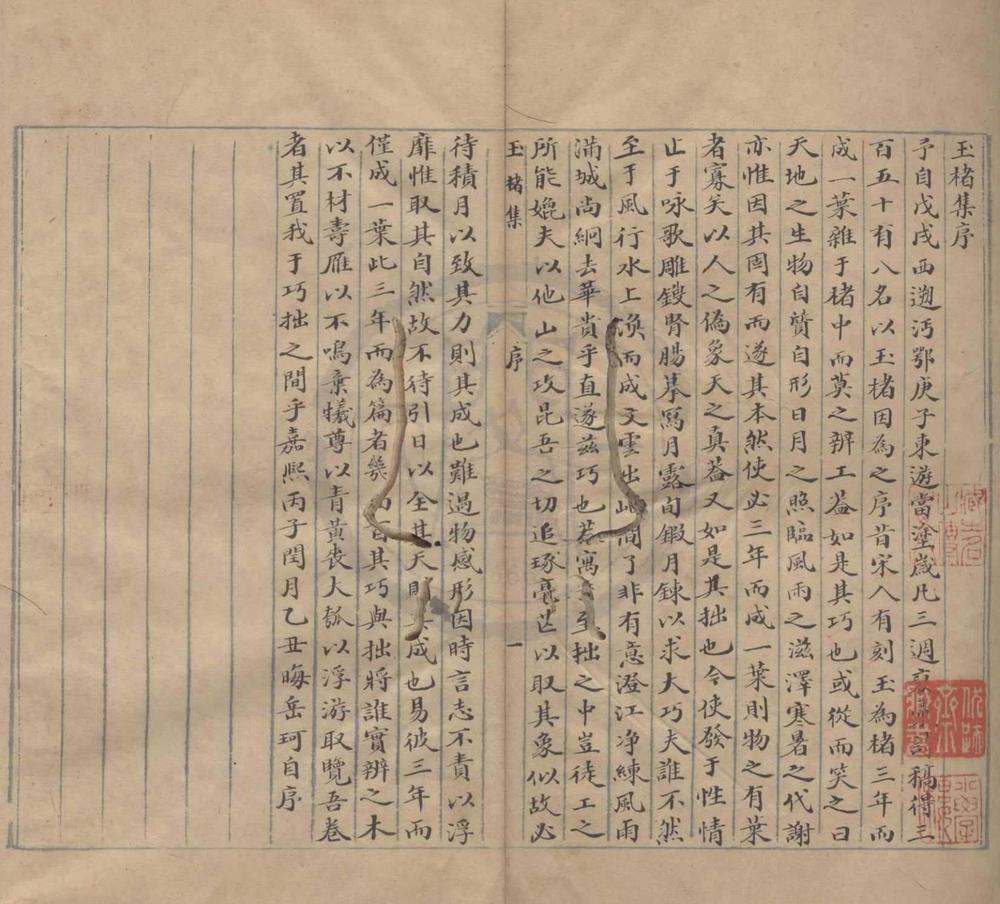 玉楮集序
予自戊戌西遡沔鄂庚子東遊當塗歲凡三週裒舊稿得三
百五十有八名以玉楮因為之序昔宋人有刻玉為楮三年而
成一葉雜于楮中而莫之辨工益如是其巧也或從而笑之曰
天地之生物自贊自形日月之照臨風雨之滋澤寒暑之代謝
亦惟因其固有而遂其本然使必三年而成一葉則物之有葉
者寡矣以人之偽象天之真葢又如是其拙也今使發于性情
止于咏歌雕鎪腎腸摹寫月露旬鍜月鍊以求大巧夫誰不然
至于風行水上渙而成文雲出岫間了非有意澄江净練風雨
滿城尚絅去華貴乎直遂兹巧也若寓至拙之中豈徒工之
所能媲夫以他山之攻昆吾之切追琢毫芒以取其象似故必
玉楮集 序 一
待積月以致其力則其成也難遇物感形因時言志不責以浮
靡惟取其自然故不待引日以全其天則其成也易彼三年而
僅成一葉此三年而為篇者幾百其巧與拙將誰實辨之木
以不材壽雁以不鳴棄犧尊以青黃喪大瓠以浮游取覽吾卷
者其置我于巧拙之間乎嘉熙丙子閏月乙丑晦岳珂自序